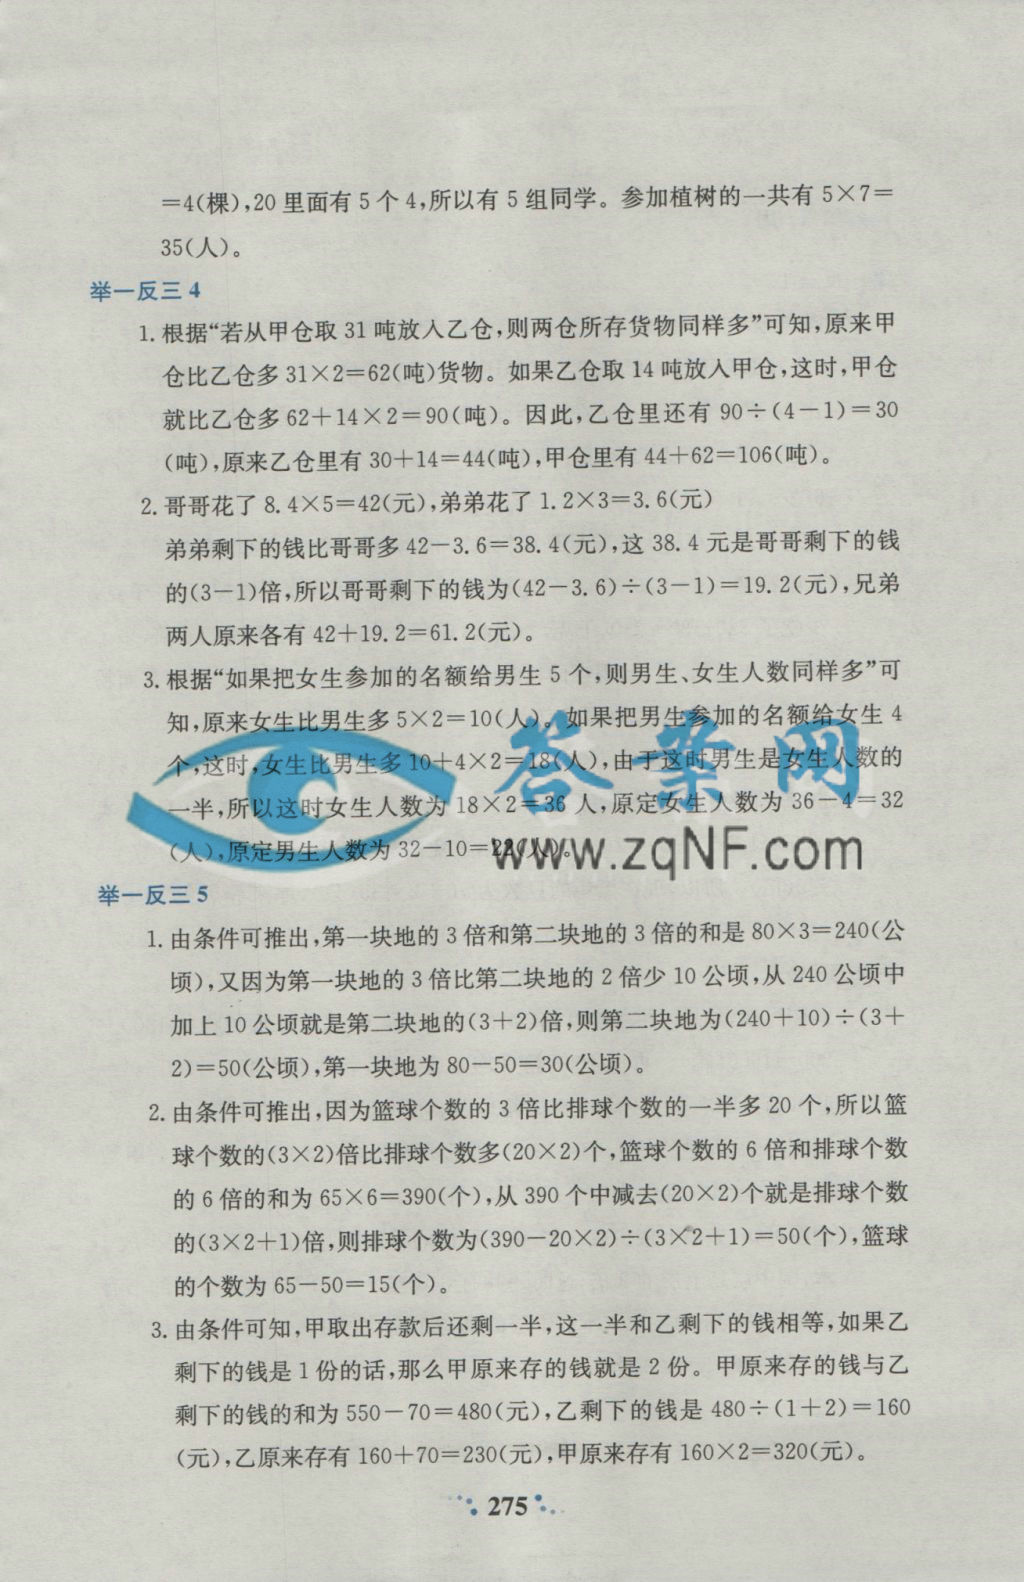 =4(棵),20里面有5个4,所以有5组同学。参加植树的一共有5×7=
35(人)。
举一反三4
1. 根据“若从甲仓取31吨放入乙仓,则两仓所存货物同样多”可知,原来甲
仓比乙仓多31×2=62(吨)货物。如果乙仓取14吨放入甲仓,这时,甲仓
就比乙仓多62+14×2=90(吨)。因此,乙仓里还有90÷(4-1)=30
(吨),原来乙仓里有30+14=44(吨),甲仓里有44+62=106(吨)。
2. 哥哥花了8.4×5=42(元),弟弟花了1.2×3=3.6(元)
弟弟剩下的钱比哥哥多42-3.6=38.4(元),这38.4元是哥哥剩下的钱
的(3-1)倍,所以哥哥剩下的钱为(42-3.6)÷(3-1)=19.2(元),兄弟
两人原来各有42+19.2=61.2(元)。
3. 根据“如果把女生参加的名额给男生5个,则男生、女生人数同样多”可
知,原来女生比男生多5×2=10(人)。如果把男生参加的名额给女生4
个,这时,女生比男生多10+4×2=18(人),由于这时男生是女生人数的
一半,所以这时女生人数为18×2=36人,原定女生人数为36-4=32
(人),原定男生人数为32-10=22(人)。
答案网
www.zqNF.com
举一反三5
1. 由条件可推出,第一块地的3倍和第二块地的3倍的和是80×3=240(公
顷),又因为第一块地的3倍比第二块地的2倍少10公顷,从240公顷中
加上10公顷就是第二块地的(3+2)倍,则第二块地为(240+10)÷(3+
2)=50(公顷),第一块地为80-50=30(公顷)。
2. 由条件可推出,因为篮球个数的3倍比排球个数的一半多20个,所以篮
球个数的(3×2)倍比排球个数多(20×2)个,篮球个数的6倍和排球个数
的6倍的和为65×6=390(个),从390个中减去(20×2)个就是排球个数
的(3×2+1)倍,则排球个数为(390-20×2)÷(3×2+1)=50(个),篮球
的个数为65-50=15(个)。
3. 由条件可知,甲取出存款后还剩一半,这一半和乙剩下的钱相等,如果乙
剩下的钱是1份的话,那么甲原来存的钱就是2份。甲原来存的钱与乙
剩下的钱的和为550-70=480(元),乙剩下的钱是480÷(1+2)=160
(元),乙原来存有160+70=230(元),甲原来存有160×2=320(元)。
275